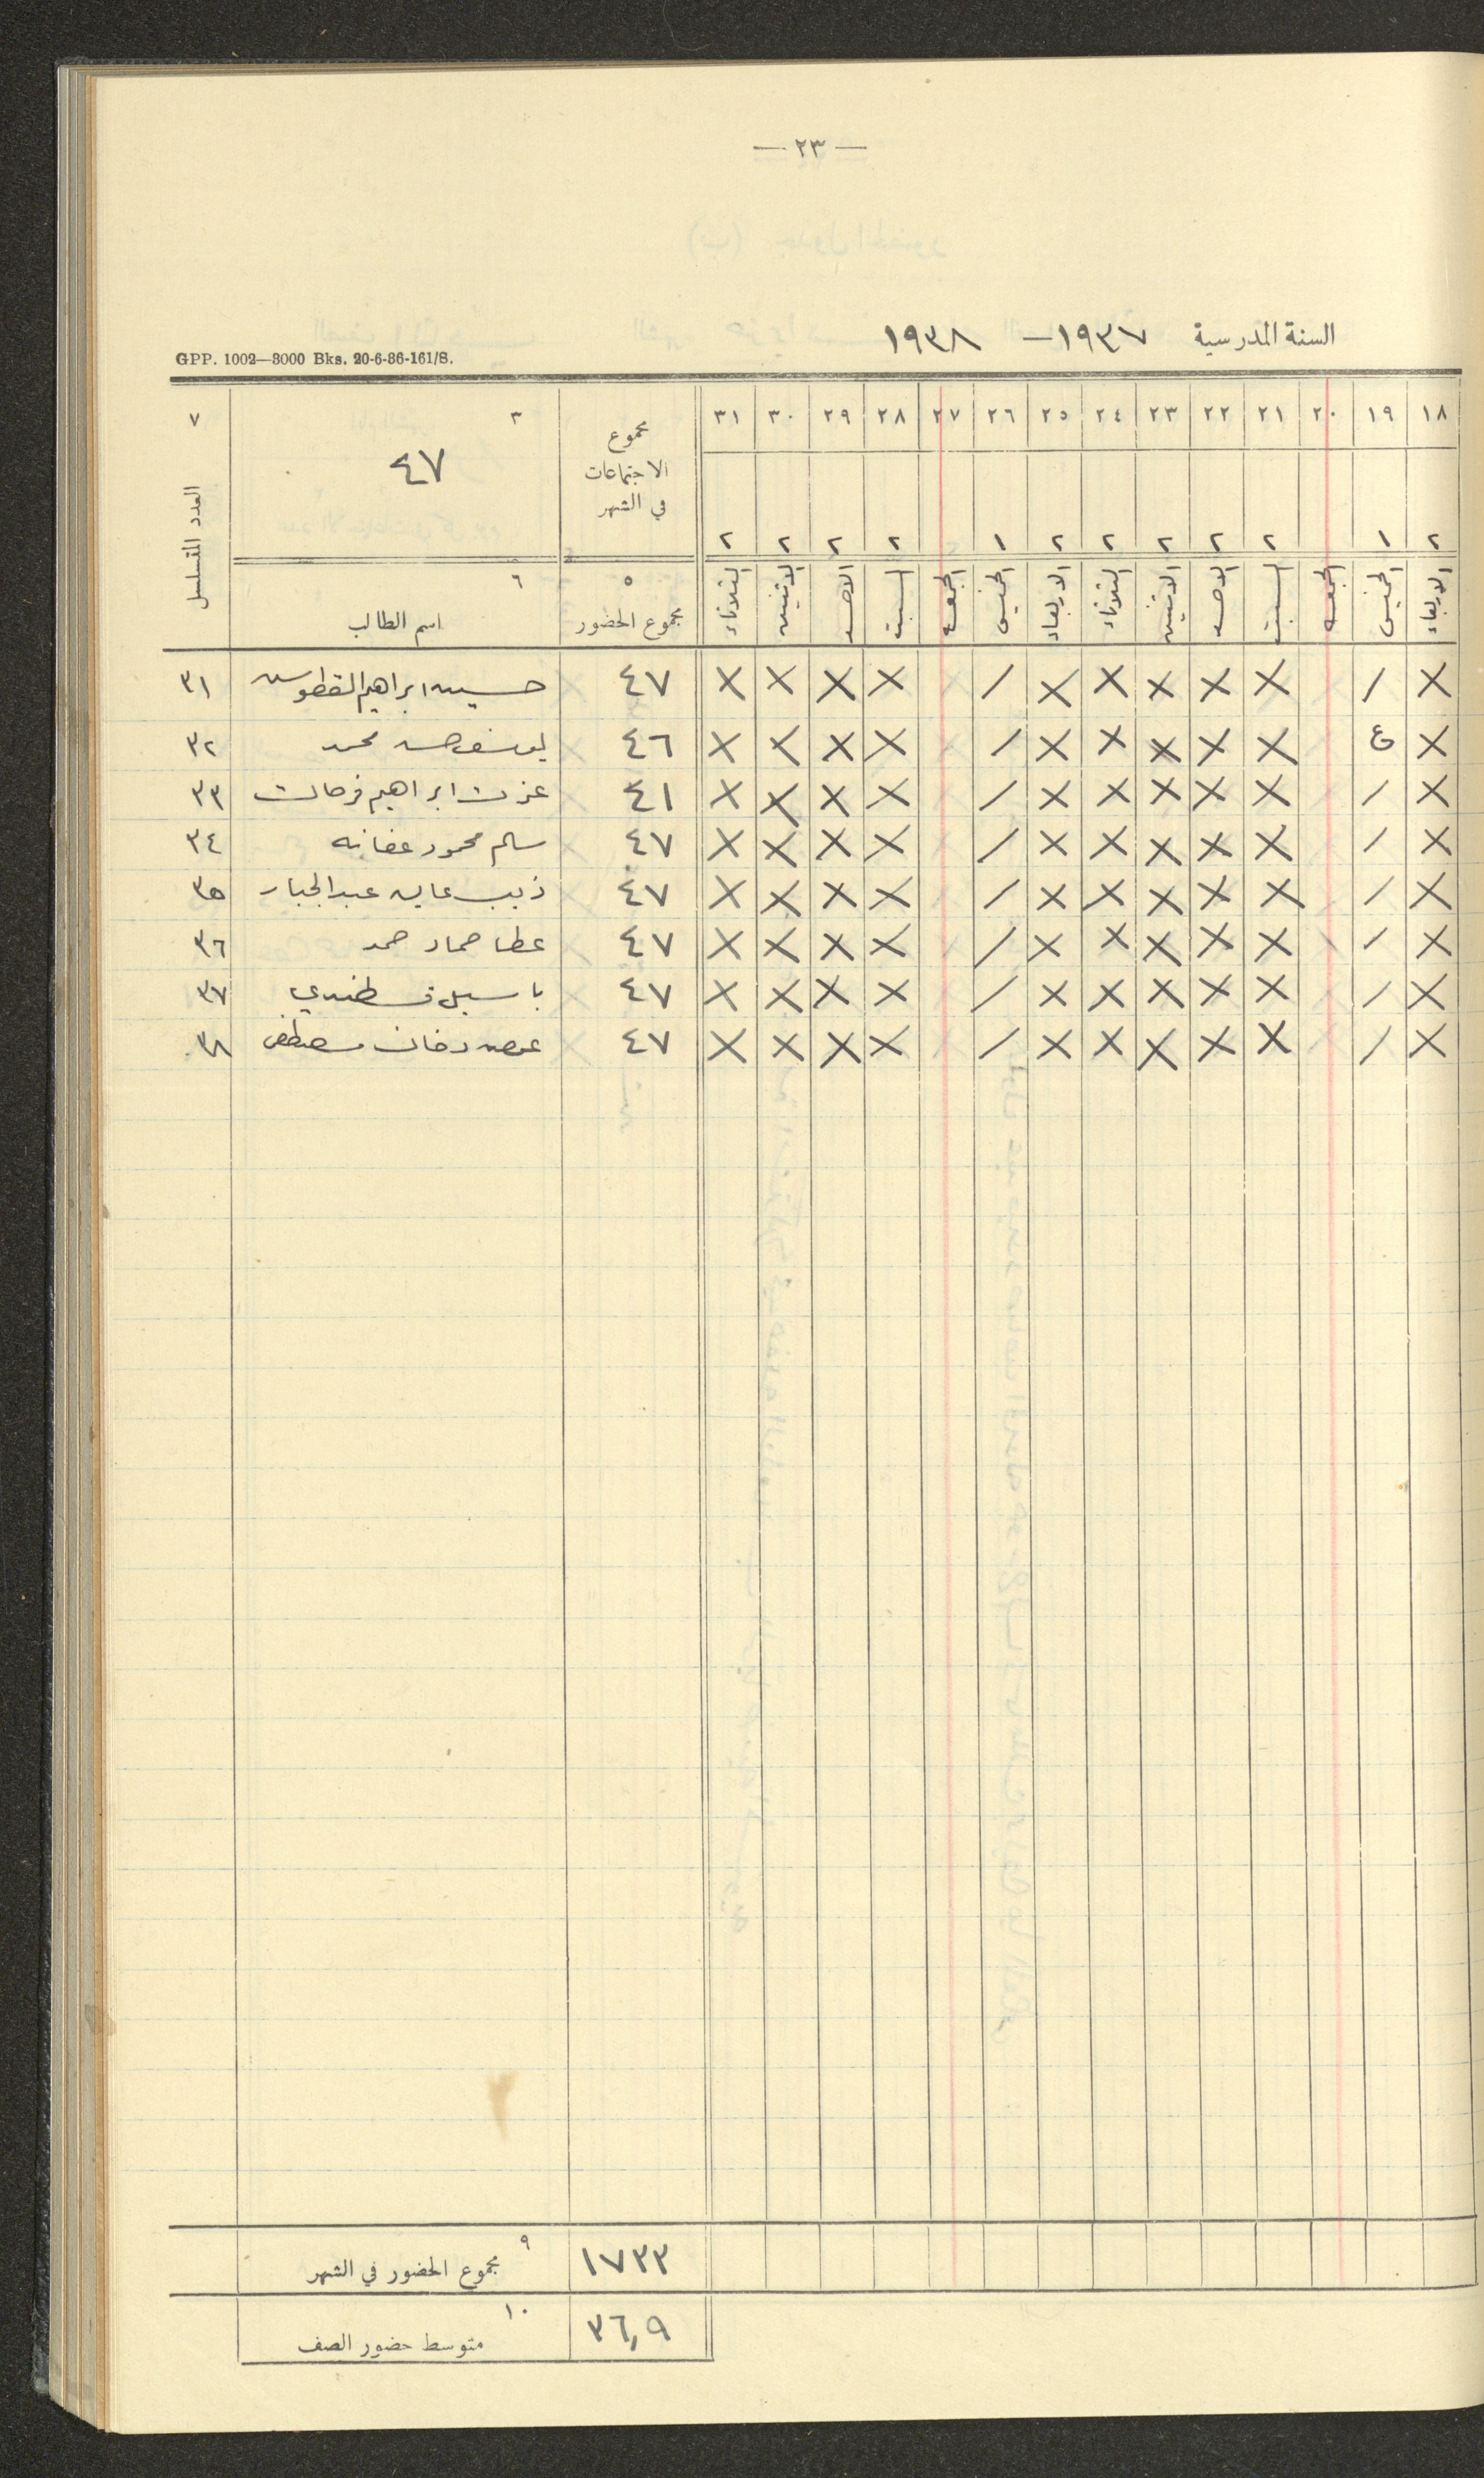 — ٢٣ —
السنة المدرسية ١٩٣٧ — ١٩٣٨
GPP. 1002—3000 Bks. 20-6-36-161/S.
١٨ ١٩ ٢٠ ٢١ ٢٢ ٢٣ ٢٤ ٢٥ ٢٦ ٢٧ ٢٨ ٢٩ ٣٠ ٣١ مجموع الاجتماعات في الشهر ٣ ٤٧ ٧ العدد المتسلسل
٢ ١ ٢ ٢ ٢ ٢ ٢ ١ ٢ ٢ ٢ ٢
الاربعاء الخميس الجمعه السبت الاحد الاثنين الثلاثاء الاربعاء الخميس الجمعه السبت الاحد الاثنين الثلاثاء ٥ مجموع الحضور ٦ اسم الطالب
X / X X X X X / X X X X ٤٧ حسين ابراهيم القطوسه ٣١
X ع X X X X X / X X X X ٤٦ يوسف حسن محمد ٣٢
X / X X X X X / X X X X ٤١ عزت ابراهيم فرحات ٣٣
X / X X X X X / X X X X ٤٧ سالم محمود عفانه ٣٤
X / X X X X X / X X X X ٤٧ ذيب عايد عبد الجبار ٣٥
X / X X X X X / X X X X ٤٧ عطا حماد حمد ٣٦
X / X X X X X / X X X X ٤٧ باسيل قسطندي ٣٧
X / X X X X X / X X X X ٤٧ مصطفى ٣٨
٩ مجموع الحضور في الشهر ١٧٣٣
١٠ متوسط حضور الصف ٣٦,٩